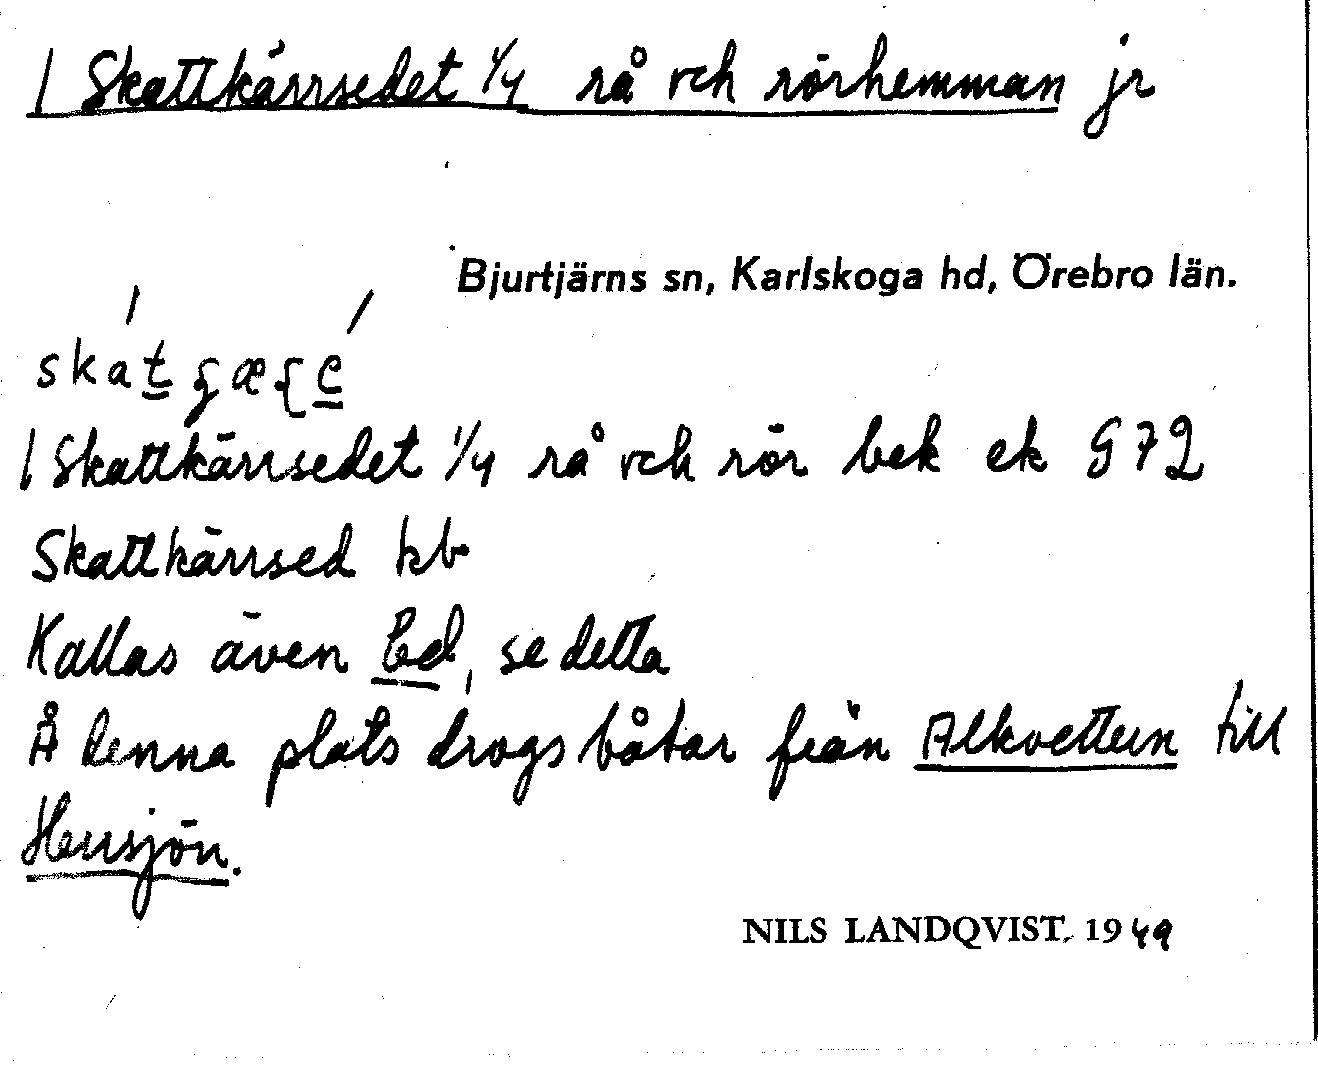 / Skattkärrsedet 1/4 rå och rörhemman jr
Bjurtjärns sn, Karlskoga hd, Örebro län.
/ Skattkärrsedet 1/4 rå och rör bek ek G72
Skattkärrsed kb
Kallas även Ed, se detta
Å denna plats drogs båtar från Alkvettern till
Hersjön.
NILS LANDQVIST, 1949